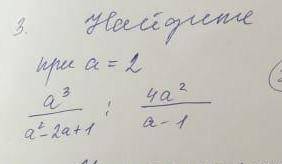 3. Найдите
при a = 2
a³/(a²-2a+1) : 4a²/(a-1)